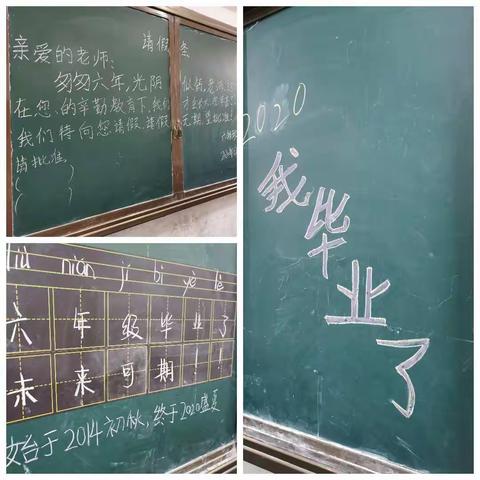 请假条
亲爱的老师:
匆匆六年,光阴似箭,老师,
在您的辛勤教育下,我们
我们特向您请假,请假无期,望批准!
请批准。
( )
( )
liù nián jí bì yè le
六年级毕业了
未来可期!!
始于2014初秋,终于2020盛夏
2020
我毕业了